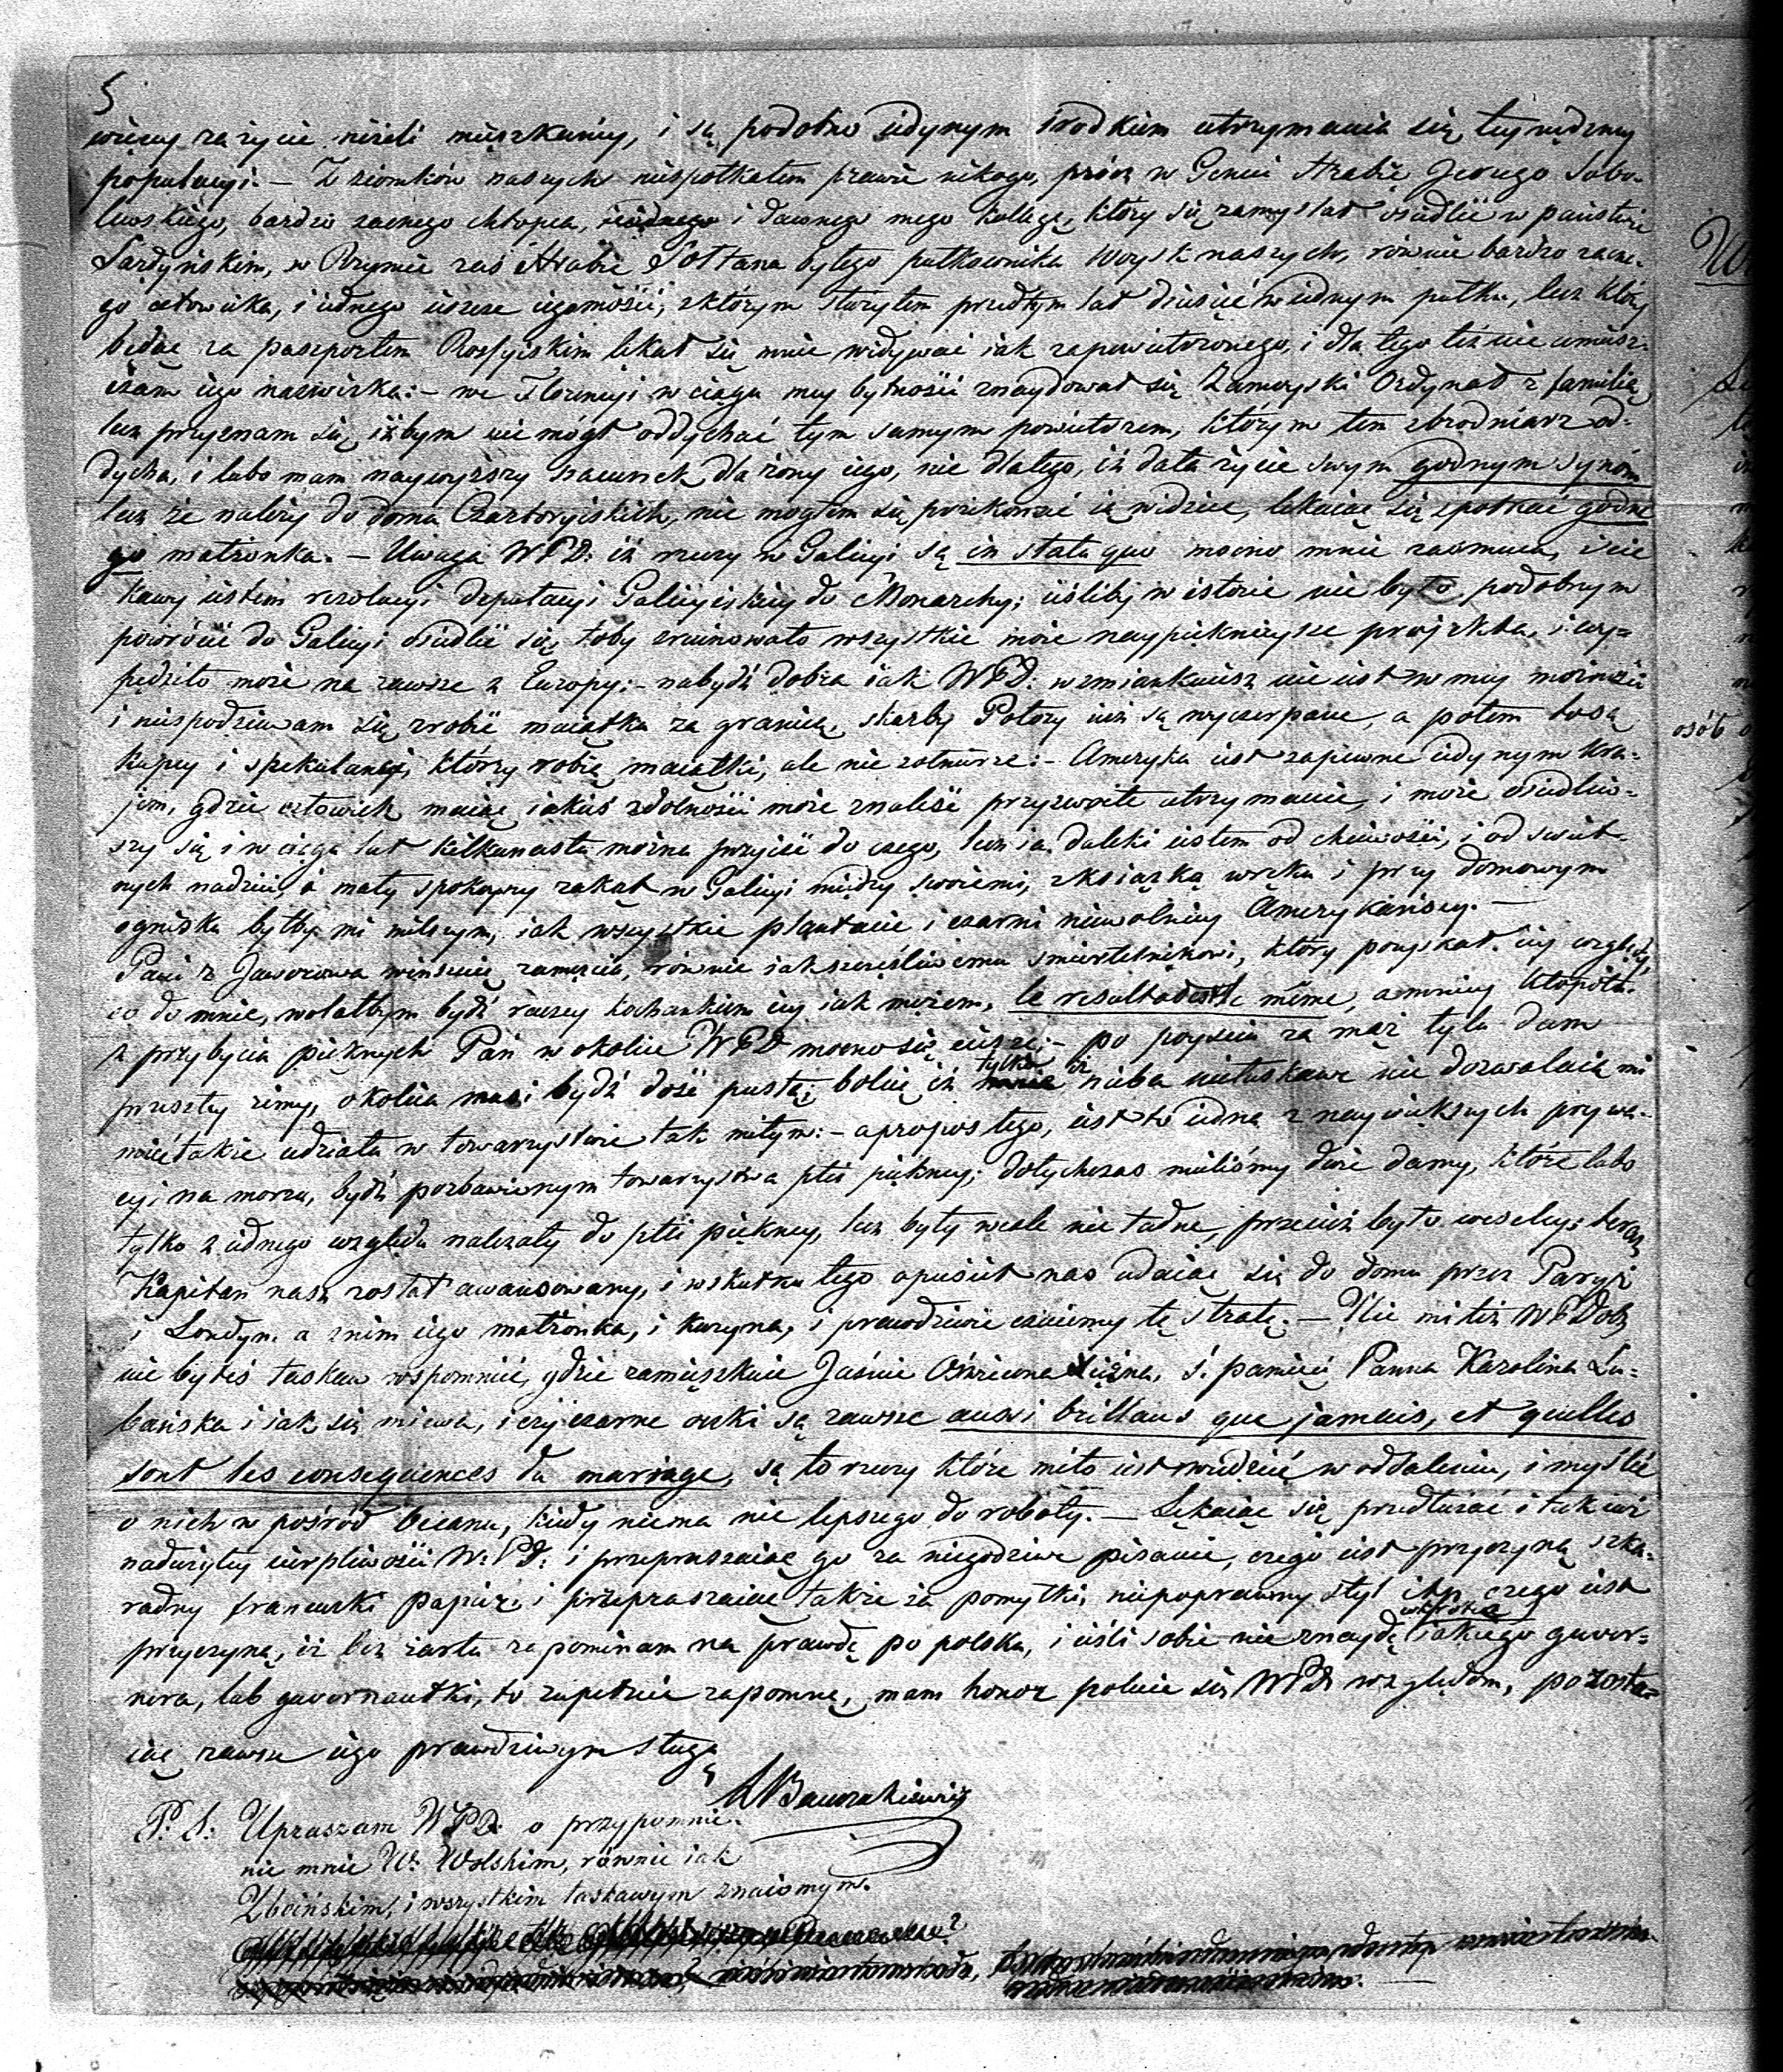 5
więcey za życie niżeli mięszkańcy, i są podobno iedynym środkiem utrzymania się tey nędzney
populacyi. — Z ziomków naszych niespotkałem prawie nikogo, prócz w Genui Hrabię Jerzego Sobo-
lewskiego, bardzo zacnego chłopca, i dawnego mego kollegę, który się zamyslał osiedlić w państwie
Sardyńskim, w Rzymie zaś Hrabie Sołtana byłego pułkownika Woysk naszych, równie bardzo zacne-
go człowieka, i iednego ieszcze iegomości, z którym służyłem przedtym lat dziesięć w iednym pułku, lecz który
będąc za paszportem Rossyiskim lękał się mnie widywać iak zapowietrzonego, i dla tego też nie umiesz-
czam iego nazwiska: — we Florencyi w ciągu mey bytności znaydował się Zamoyski Ordynat z familią
lecz przyznam się, iżbym nie mógł oddychać tym samym powietrzem, którym ten zbrodniarz od-
dycha, i lubo mam naywyższy szacunek dla żony iego, nie dlatego, iż dała życie swym godnym synom
lecz że należy do domu Czartoryiskich, nie mogłem się przekonać ią widzieć, lękaiąc się spotkać godne-
go małżonka. — Uwaga WPD: iż rzeczy w Galicyi są in statu quo mocno mnie zasmuca, i cie
kawy iestem rezolucyi deputacyi Galicyiskiey do Monarchy; ieśliby w istocie nie było podobnym
powrócić do Galicyi osiedlić się, toby zruinowało wszystkie moie naypięknieysze proiekta, i wy=
pędziło może na zawsze z Europy; — nabydź dobra iak WPD: wzmiankuiesz nie iest w mey możności
i niespodziewam się zrobić maiątku za granicą, skarby Potozy iuż są wyczerpane, a potem to są
kupcy i spekulanci, którzy robią maiątki, ale nie żołnierze: — Ameryka iest zapewne iedynym kra-
jem, gdzie człowiek maiąc iakieś zdolności może znaleść przyzwoite utrzymanie, i może osiedliw-
szy się i w ciągu lat kilkunastu można przyiść do czego, lecz ia daleki iestem od chciwości, i od świet-
nych nadziei, i mały spokoyny zakąt w Galicyi między swoiemi, z ksiązką w ręku i przy domowym
ognisku byłby mi milszym, iak wszystkie plantacie i czarni niewolnicy Amerykańscy. —
Pani z Jaworowa winszuię zamęścia, równie iak szczęśliwemu śmiertelnikowi, który pozyskał iey względy,
co do mnie, wolałbym bydź raczey kochankiem iey iak mężem, le resultat est le même, a mniey kłopotu.
z przybycia pięknych Pań w okolice WPD mocno się cieszę; — po poyściu za mąż tylu dam
przeszłey zimy, okolica musi bydź dość pustą; boleię iż tylko iż nieba niełaskawe nie dozwalaią mi
mieć także udziału w towarzystwie tak miłym: — apropos tego, iest to iedna z naywiększych prywa-
cyi na morzu, bydź pozbawionym towarzystwa płci piękney; dotychczas mieliśmy dwie damy, które lubo
tylko z iednego względu należały do płci piękney, lecz były wcale nie ładne, przecież było weseley; teraz
Kapitan nasz został awansowany, i wskutku tego opuścił nas udaiąc się do domu przez Paryż
i Londyn a z nim iego małżonka, i kuzyna, i prawdziwie czuiemy tę stratę. — Nie mi też WPDob
nie byłeś łaskaw wspomnieć, gdzie zamięszkuie Jaśnie Oświecona Xiężna, ś. pamięci Panna Karolina Lu=
bańska i iak się miewa, i czy czarne oczki są zawsze aussi brillans que jamais, et quelles
sont les consequences du mariage, są to rzeczy które miło iest wiedzieć w oddaleniu, i myślić
o nich w pośród Oceanu, kiedy niema nic lepszego do roboty. — Lękaiąc się przedłużać i tak iuż
nadużytey cierpliwości W.PD. i przepraszaiąc go za niegodziwe pisanie, czego iest przyczyną szka-
radny francuski papier, i przepraszaiąc także za pomyłki, niepoprawny styl itp. czego iest
przyczyną, iż bez żartu zapominam na prawdę po polsku, i ieśli sobie nie znaydę wkrótce iakiego guwer=
nera, lub guwernantki, to zupełnie zapomnę, mam honor polecić się WPD względom, pozosta=
iąc zawsze iego prawdziwym sługą
P. S: Upraszam WPD: o przypomnie-
nie mnie W. Wolskim, równie iak
Zboińskim, i wszystkim łaskawym znaiomym.
osób